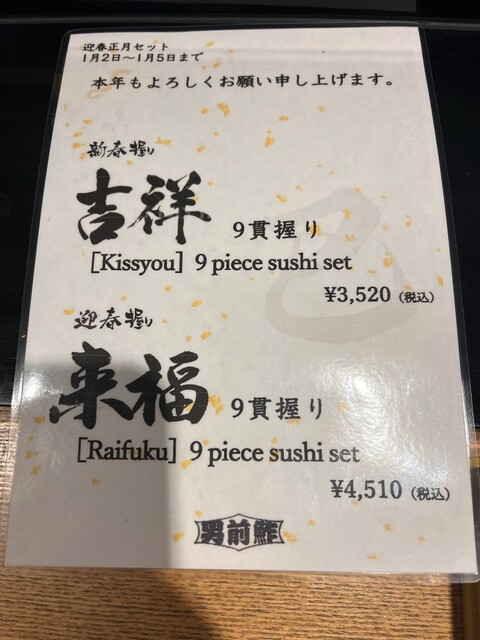 迎春正月セット
1月2日～1月5日まで
本年もよろしくお願い申し上げます。
新春握り
吉祥 9貫握り
[Kissyou] 9 piece sushi set
¥3,520 (税込)
迎春握り
来福 9貫握り
[Raifuku] 9 piece sushi set
¥4,510 (税込)
男前鮓
巳